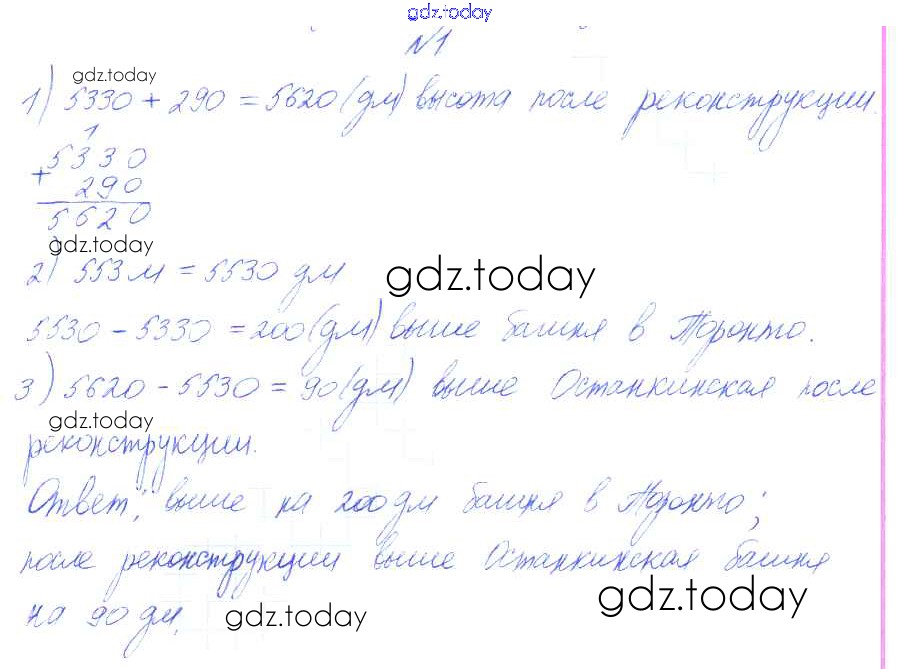 gdz.today
N1
gdz.today
1) 5330 + 290 = 5620 (дм) высота после реконструкции.
1
5330
+
290
5620
gdz.today
2) 553 м = 5530 дм
gdz.today
5530 - 5330 = 200 (дм) выше башня в Торонто.
3) 5620 - 5530 = 90 (дм) выше Останкинская после
gdz.today
реконструкции.
Ответ: выше на 200 дм башня в Торонто;
после реконструкции выше Останкинская башня
gdz.today
на 90 дм.
gdz.today